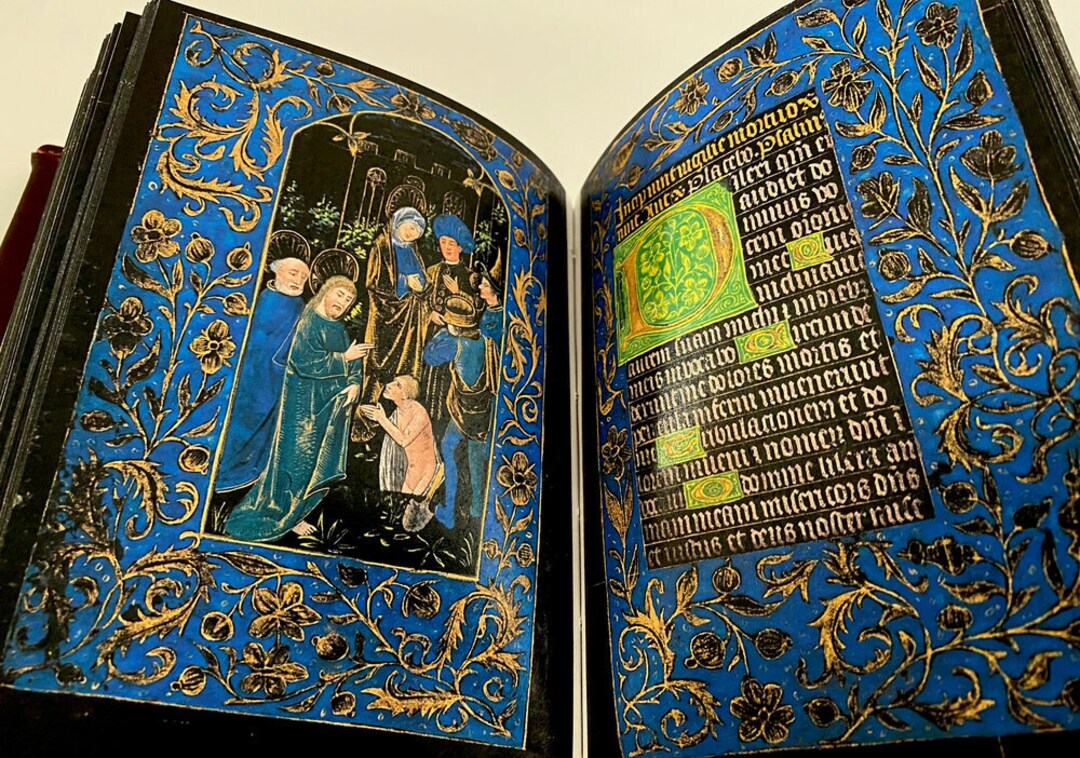 Incipiunt vigilie mortuor
Placebo. Psalm
Dilexi qm ex
audiet do
minus vo
cem
mee Quia
inclinauit
aurem suam michi ⁊ in dieb
meis inuocabo Circumde
derunt me dolores mortis et
pericula inferni inuenerunt
Tribulationem et do
lorem inueni ⁊ nomen dni i
O domine libera an
mam meam misericors dns
et iustus et deus noster mise